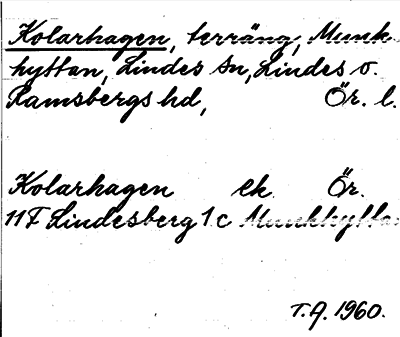 Kolarhagen, terräng, Munk-
hyttan, Lindes sn, Lindes o.
Ramsbergs hd, Ör. l.
Kolarhagen ek. Ör.
11F Lindesberg 1c Munkhyttan
T.A. 1960.